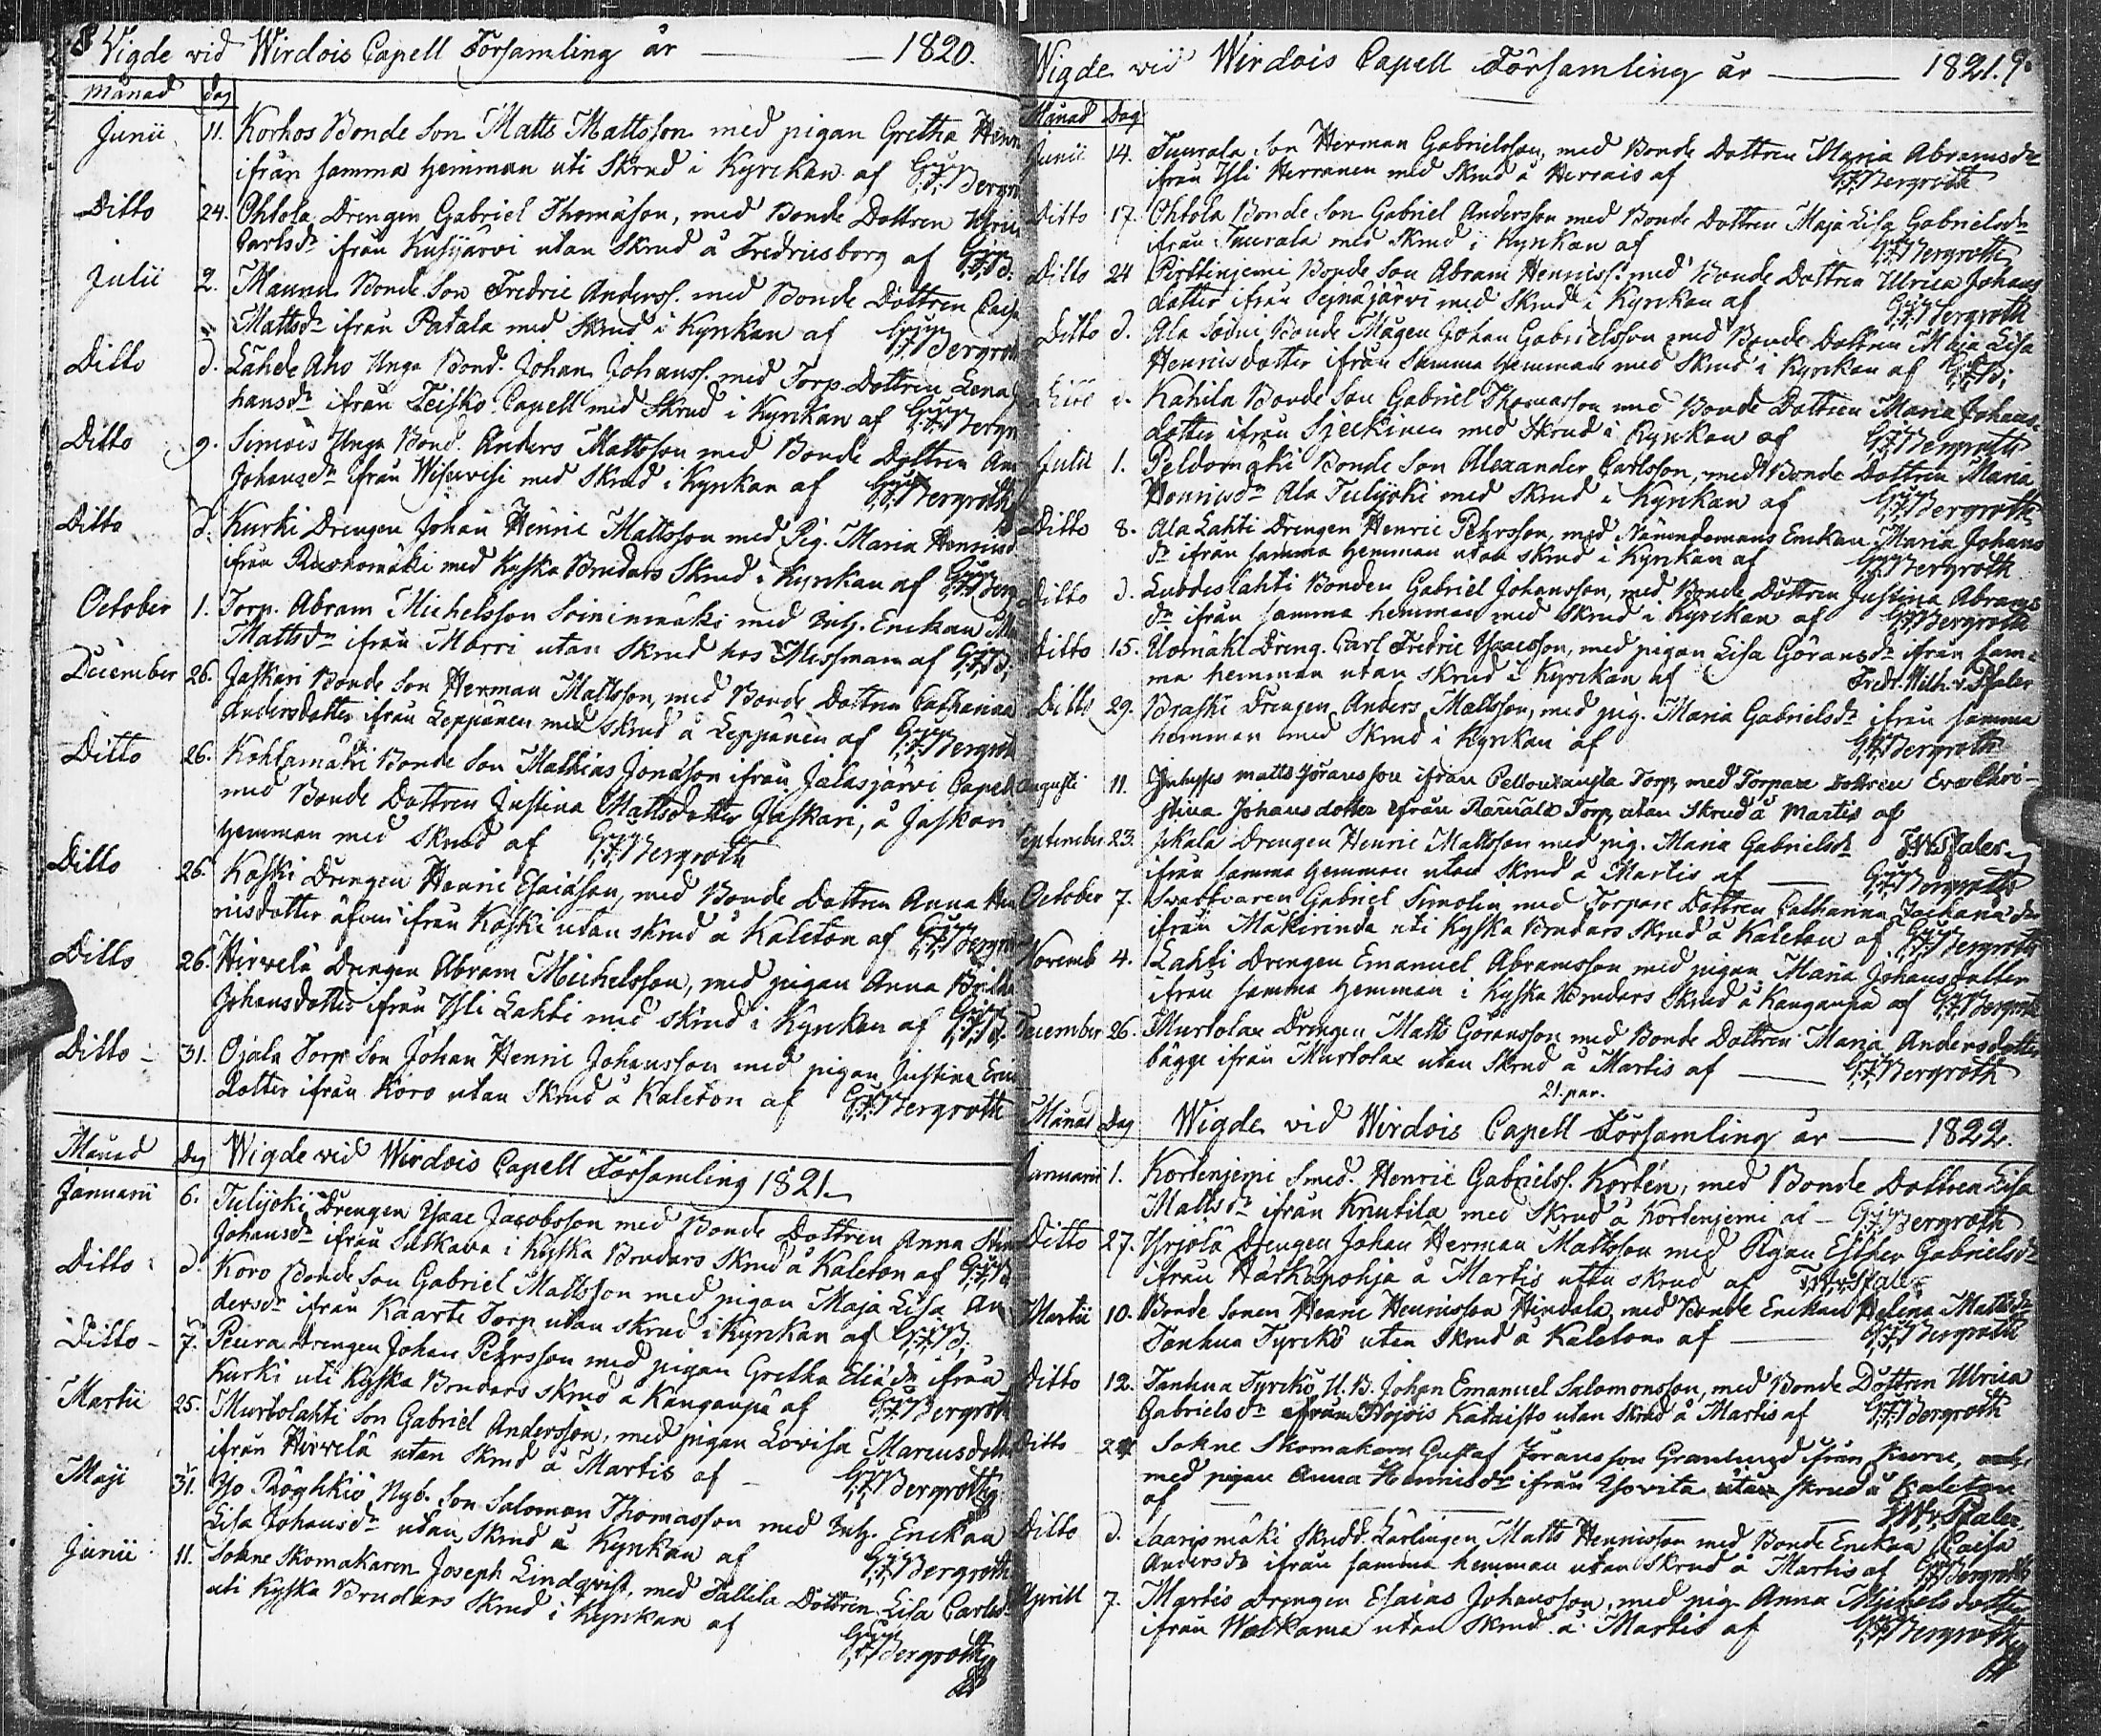 8 Vigde vid Wirdois Capell Församling år — 1820.
Månad dag
Junii 11. Korhos Bonde Son Matts Mattsson med pigan Gretha
ifrån samma Hemman uti Skrud i Kyrckan af
Ditto 24. Ohtola Drengen Gabriel Thomasson, med Bonde Dottren
Carlsdr ifrån Kusijärvi utan Skrud å Fredricsborg af
Julii 2. Maunu Bonde Son Fredric Anderss. med Bonde Dottren
Mattsdr ifrån Patala med Skrud i Kyrckan af
Ditto d. Lähde Aho Unga Bond. Johan Johanss. med Torp. Dottren Lena
hansdr ifrån Teisko Capell med Skrud i Kyrckan af
Ditto 9. Simois Unga Bond. Anders Mattsson med Bonde Dottren
Johansdr ifrån med Skrud i Kyrckan af Bergroth
Ditto d. Kurki Drengen Johan Henric Mattsson med Pig. Maria
ifrån Ruskomäki med Kyska Brudars Skrud i Kyrckan af
October 1. Torp. Abram Michelsson Soininmäki med Inh. Enckan
Mattsdr ifrån Marri utan Skrud hos af
December 26. Jaskari Bonde Son Herman Mattsson, med Bonde Dottren Catharina
Andersdotter ifrån Leppänen med Skrud å Leppänen af
Ditto 26. Kohtamäki Bonde Son Mathias Jonasson ifrån Jalasjärvi Capell
med Bonde Dottren Justina Mattsdotter Jaskari, å Jaskari
Hemman med Skrud af Bergroth
Ditto 26. Koski Drengen Henric Esaiasson, med Bonde Dottren Anna Hen
ricsdotter äfven ifrån Koski utan skrud å Kaleton af
Ditto 26. Hirvelä Drengen Abram Michelsson, med pigan Anna
Johansdotter ifrån Yli Lahti med skrud i Kyrckan af
Ditto 31. Ojala Torp. Son Johan Henric Johansson med pigan Justina
dotter ifrån Koro utan Skrud å Kaleton af Bergroth
Månad Dag Wigde vid Wirdois Capell Församling 1821.
Januarii 6. Tulijoki Drengen Ysaac Jacobsson med Bonde Dottren Anna
Johansdr ifrån i Kyska Brudars Skrud å Kaleton af
Ditto d. Koro Bonde Son Gabriel Mattsson med pigan Maja Lisa An
dersdr ifrån Kaarto Torp utan skrud i Kyrckan af
Ditto 7. Peura Drengen Johan Pehrsson med pigan Gretha ifrån
Kurki uti Kyska Brudars skrud å Kangaspä af Bergroth
Martii 25. Murtolahti Son Gabriel Andersson, med pigan Lovisa Marcusdotter
ifrån Hirvelä utan Skrud å Martis af Bergroth
Maji 31. Yso Röyhkiö Nyb. Son Salomon Thomasson med Inh. Enckan
Lisa Johansdr utan Skrud å Kyrckan af Bergroth
Junii 11. Sokne Skomakaren Joseph Lindqvist, med Tallila Dottren Lisa Carlsdr
uti Kyska Brudars Skrud i Kyrckan af
Bergroth
Wigde vid Wirdois Capell Församling år — 1821. 9.
Månad Dag
Junii 14. Tuurala Son Herman Gabrielsson, med Bonde Dottren Maria Abramsdr
ifrån Yli Herranen med Skrud å Herrais af Bergroth
Ditto 17. Ohtola Bonde Son Gabriel Andersson med Bonde Dottren Maja Lisa Gabrielsdr
ifrån Tuurala med Skrud i Kyrckan af Bergroth
Ditto 24 Pirttinjemi Bonde Son Abram Henricss. med Bonde Dottren Ulrica Johans
dotter ifrån Seinäjärvi med Skrud i Kyrckan af Bergroth
Ditto d. Ala Soini Bonde Mågen Johan Gabrielsson med Bonde Dottren Maja Lisa
Henricsdotter ifrån Samma Hemman med Skrud i Kyrckan af
Kahila Bonde Son Gabriel Thomasson med Bonde Dottren Maria Johans
dotter ifrån med Skrud i Kyrckan af Bergroth
Julii 1. Peldomäki Bonde Son Alexander Carlsson, med Bonde Dottren Maria
Henricsdr Ala Tulijoki med Skrud i Kyrckan af Bergroth
Ditto 8. Ala Lahti Drengen Henric Pehrsson, med Nämndemans Enckan Maria Johans
dr ifrån samma Hemman utan skrud i Kyrckan af Bergroth
Ditto d. Luodeslahti Bonden Gabriel Johansson, med Bonde Dottren Justina Abrams
dr ifrån samma hemman med skrud i Kyrckan af Bergroth
Ditto 15. Uomäki Dreng. Carl Fredric Ysaacsson, med pigan Lisa Göransdr ifrån sam-
ma hemman utan skrud i Kyrckan af Fredr. Wilh. v. Pfaler
Ditto 29. Braski Drengen Anders Mattsson, med pig. Maria Gabrielsdr ifrån samma
hemman med Skrud i Kyrckan af Bergroth
Augusti 11. Inhyses Matts Jöransson ifrån Torp, med Torpare Dottren Eva Chri-
stina Johansdotter ifrån Torp utan Skrud å Martis af
September 23. Jskala Drengen Henric Mattsson med pig. Maria Gabrielsdr
ifrån samma Hemman utan Skrud å Martis af Bergroth
October 7. Svartvaren Gabriel Simolin med Torpare Dottren Catharina
ifrån Mäkirinda uti Kyska Brudars Skrud å Kaleton af Bergroth
Novemb 4. Lahti Drengen Emanuel Abramsson med pigan Maria Johansdotter
ifrån samma Hemman i Kyska Brudars Skrud å Kangaspä af Bergroth
December 26. Murtolax Drengen Matts Göransson med Bonde Dottren Maria Andersdotter
bägge ifrån Murtolax utan Skrud å Martis af Bergroth
21. par.
Månad Dag Wigde vid Wirdois Capell Församling år — 1822.
Januarii 1. Kortenjemi Smed. Henric Gabrielss. Kortén, med Bonde Dottren Lisa
Mattsdr ifrån Knutila med Skrud å Kortenjemi af — Bergroth
Ditto 27. Yrjölä Drengen Johan Herman Mattsson med Pigan Esther Gabrielsdr
ifrån Härkönpohja å Martis utan skrud af
Martii 10. Bonde Sonen Henric Henricsson Hindala, med Bonde Enckan Helena Mattsdr
Tanhua Tyrckö utan Skrud å Kaleton af Bergroth
Ditto 12. Tanhua Tyrckö, U. B. Johan Emanuel Salomonsson, med Bonde Dottren Ulrica
Gabrielsdr ifrån Katajsto utan Skrud å Martis af Bergroth
Ditto Sokne Skomakaren Gustaf Jöransson Granlund ifrån
med pigan Anna Henricsdr ifrån Ysovita utan skrud å Kaleton
af
Ditto d. Saarismäki Skrädd. Lärlingen Matts Henricsson med Bonde Enckan Caisa
Andersdr ifrån samma hemman utan Skrud å Martis af Bergroth
Aprill 7. Martis Drengen Esaias Johansson, med pig. Anna Michelsdotter
ifrån Walkama utan Skrud å Martis af Bergroth